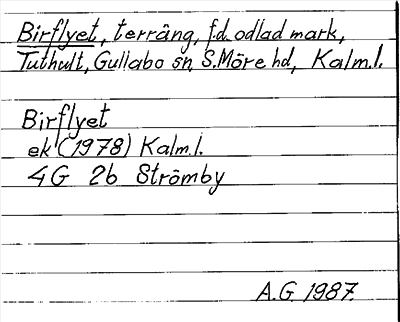 Birflyet, terräng, f.d. odlad mark,
Tuthult, Gullabo sn, S. Möre hd, Kalm.l.
Birflyet
ek (1978) Kalm.l.
4G 2b Strömby
A.G. 1987.